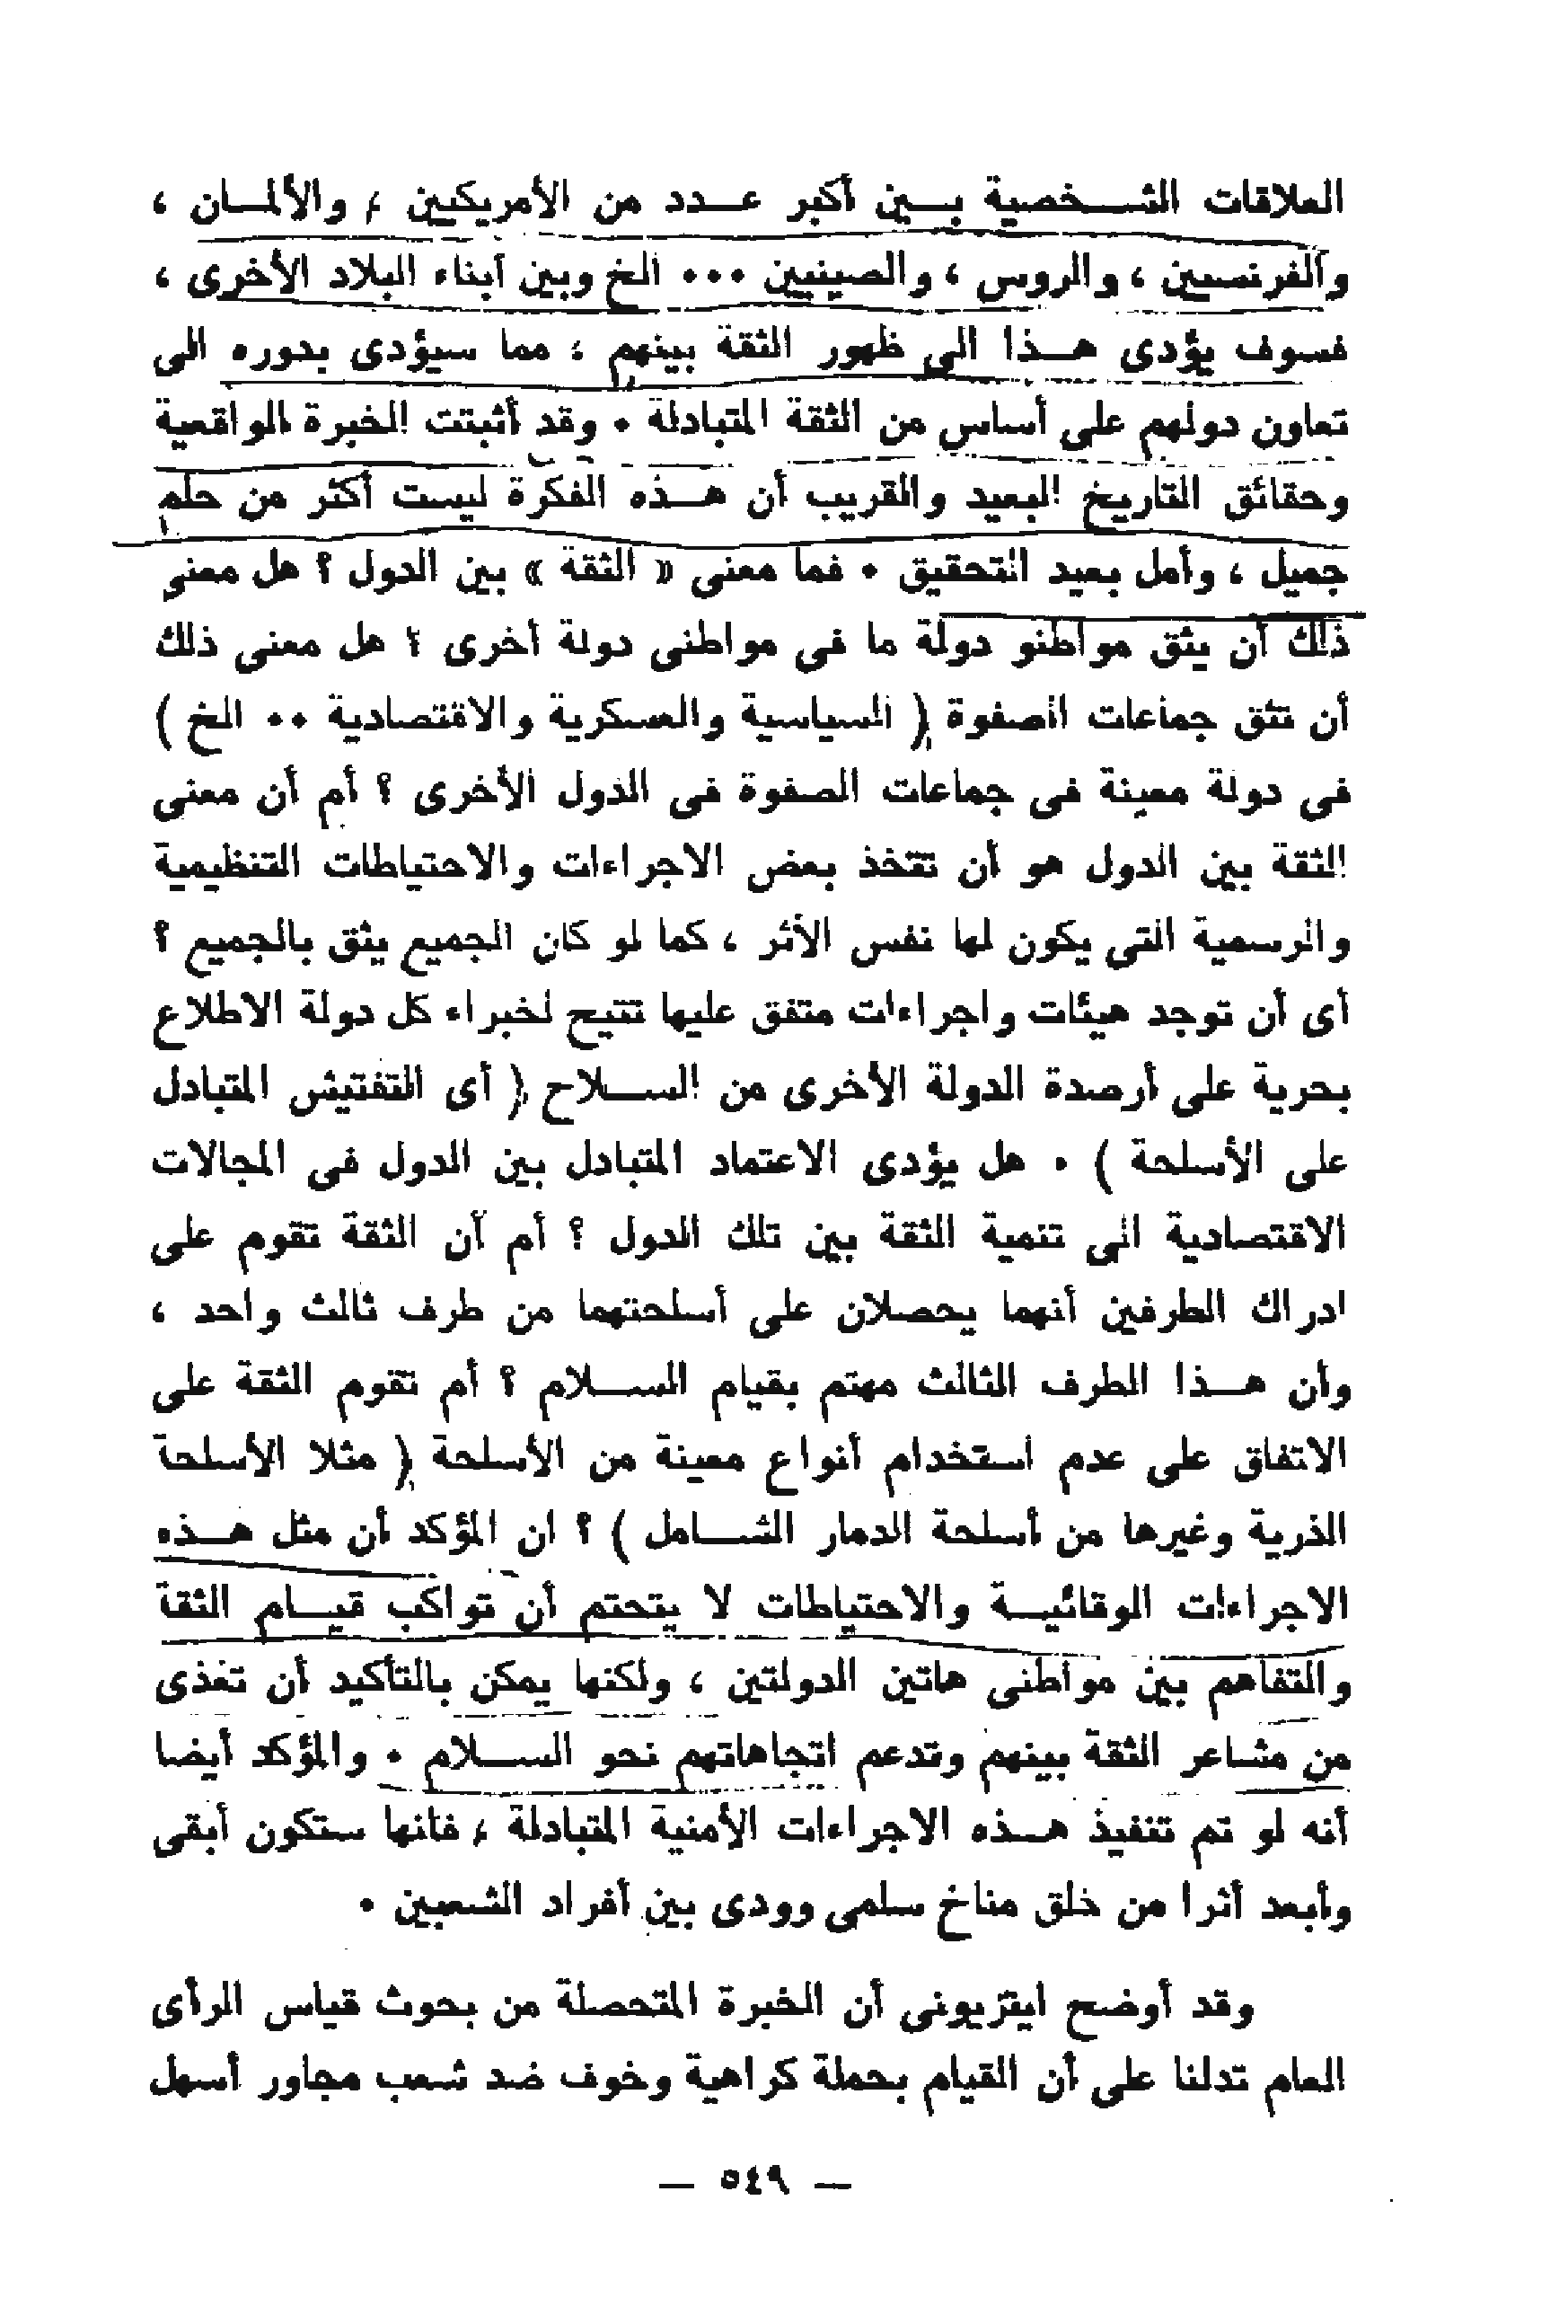 العلاقات الشخصية بين أكبر عدد من الأمريكيين ، والألمان ،
والفرنسيين ، والروس ، والصينيين ٠٠٠ الخ وبين أبناء البلاد الأخرى ،
فسوف يؤدى هذا الى ظهور الثقة بينهم ، مما سيؤدى بدوره الى
تعاون دولهم على أساس من الثقة المتبادلة ٠ وقد أثبتت الخبرة الواقعية
وحقائق التاريخ البعيد والقريب أن هذه الفكرة ليست أكثر من حلم
جميل ، وأمل بعيد التحقيق ٠ فما معنى « الثقة » بين الدول ؟ هل معنى
ذلك أن يثق مواطنو دولة ما فى مواطنى دولة أخرى ؟ هل معنى ذلك
أن تثق جماعات الصفوة ( السياسية والعسكرية والاقتصادية ٠٠ الخ )
فى دولة معينة فى جماعات الصفوة فى الدول الأخرى ؟ أم أن معنى
الثقة بين الدول هو أن تتخذ بعض الاجراءات والاحتياطات التنظيمية
والرسمية التى يكون لها نفس الأثر ، كما لو كان الجميع يثق بالجميع ؟
أى أن توجد هيئات واجراءات متفق عليها تتيح لخبراء كل دولة الاطلاع
بحرية على أرصدة الدولة الأخرى من السلاح ( أى التفتيش المتبادل
على الأسلحة ) ٠ هل يؤدى الاعتماد المتبادل بين الدول فى المجالات
الاقتصادية الى تنمية الثقة بين تلك الدول ؟ أم أن الثقة تقوم على
ادراك الطرفين أنهما يحصلان على أسلحتهما من طرف ثالث واحد ،
وأن هذا الطرف الثالث مهتم بقيام السلام ؟ أم تقوم الثقة على
الاتفاق على عدم استخدام أنواع معينة من الأسلحة ( مثلا الأسلحة
الذرية وغيرها من أسلحة الدمار الشامل ) ؟ ان المؤكد أن مثل هذه
الاجراءات الوقائية والاحتياطات لا يتحتم أن تواكب قيام الثقة
والتفاهم بين مواطنى هاتين الدولتين ، ولكنها يمكن بالتأكيد أن تغذى
من مشاعر الثقة بينهم وتدعم اتجاهاتهم نحو السلام ٠ والمؤكد أيضا
أنه لو تم تنفيذ هذه الاجراءات الأمنية المتبادلة ، فانها ستكون أبقى
وأبعد أثرا من خلق مناخ سلمى وودى بين أفراد الشعبين ٠
وقد أوضح ايتزيونى أن الخبرة المتحصلة من بحوث قياس الرأى
العام تدلنا على أن القيام بحملة كراهية وخوف ضد شعب مجاور أسهل
— ٥٤٩ —